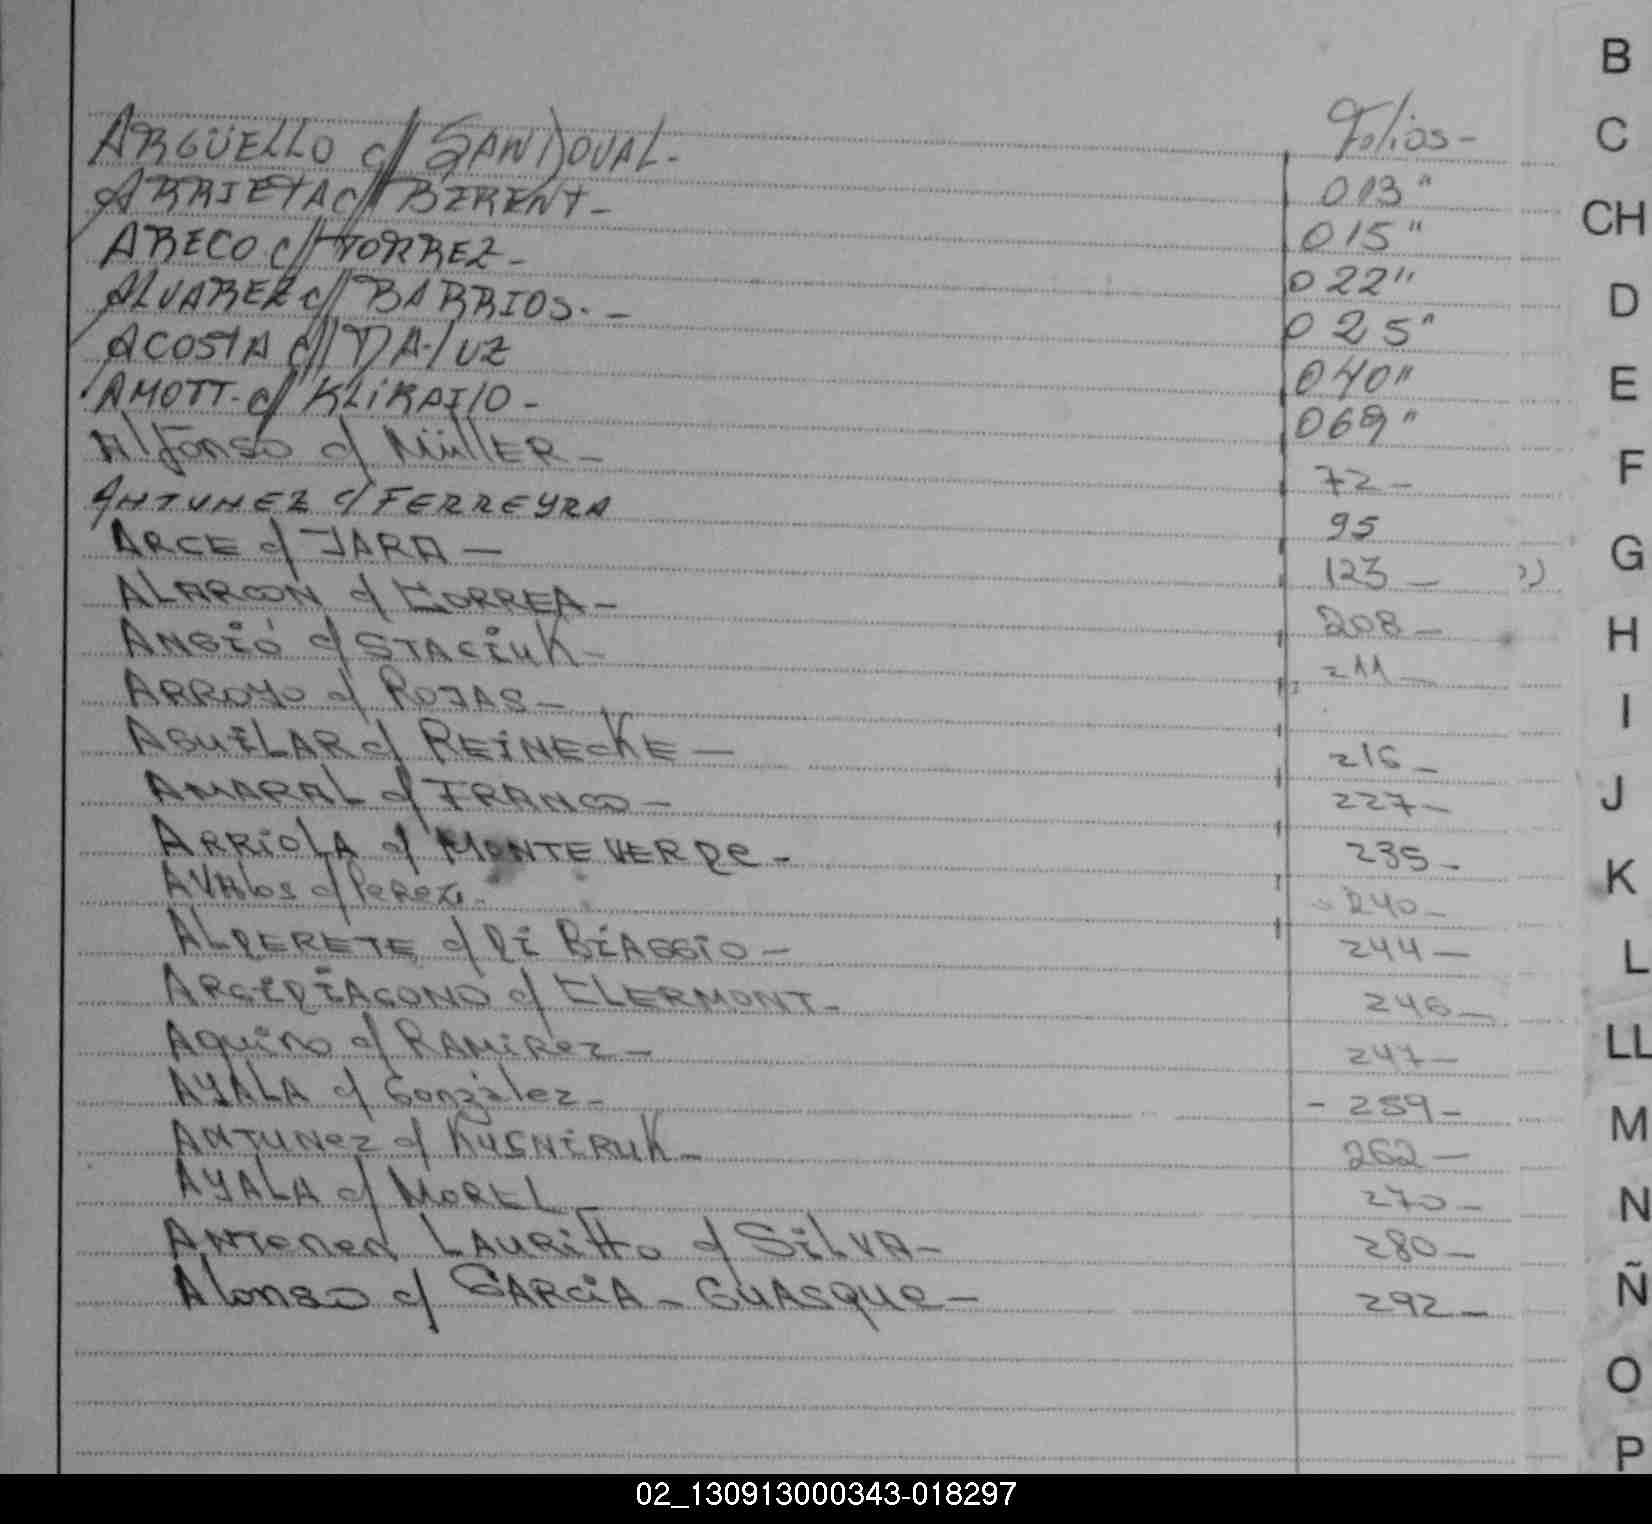 Folios-
ARGÜELLO c/ SANDOVAL-
ARRIETA c/ BERENT- 013"
ARECO c/ TORREZ- 015"
ALVAREZ c/ BARRIOS.- 022"
ACOSTA c/ DA-luz 025"
AMOTT- c/ KLiRAIlO- 040"
069"
Alfonso c/ MüllER- 72-
ANTUNEZ c/ FERREYRA 95
ARCE c/ JARA- 123-
ALARCON c/ CORREA- 208-
c/ STACiuK- 211-
ARROYO c/ ROJAS-
AGUiLAR c/ REiNEcKE- 216-
AMARAL c/ FRANCO- 227-
ARRiOLA c/ MONTEVERDe- 235-
AVAlos c/ Perez.- 240-
ALDERETE c/ Di BiAGGiO- 244-
ARCiDiACONO c/ CLERMONT- 246-
AQuiNo c/ RAMiRez- 247-
AYALA c/ González- - 259-
ANTUNez c/ KUSNiRuK- 262-
AYALA c/ MOREL 270-
LAURiTTo c/ SiLVA- 280-
Alonso c/ GARCiA-GUASque- 292-
B
C
CH
D
E
F
G
H
I
J
K
L
LL
M
N
Ñ
O
P
02_130913000343-018297